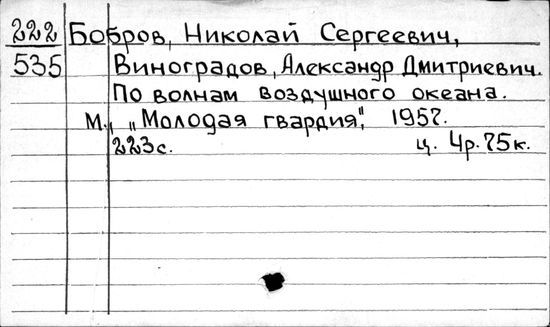 222 Бобров, Николай Сергеевич,
535 Виноградов, Александр Дмитриевич.
По волнам воздушного океана.
М., „Молодая гвардия", 1957.
223с. ц. 4р.75к.